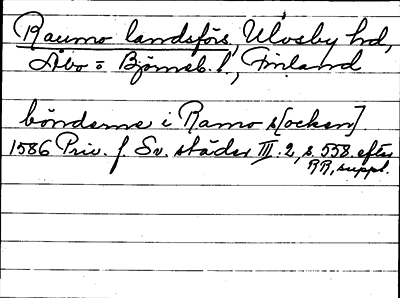 Raumo landsförs, Ulvsby hd,
Åbo o Björneb. l., Finland
bönderne i Ramo s[ocken]
1586 Priv. f. Sv. städer III:2, s. 558. efter
RR, suppl.